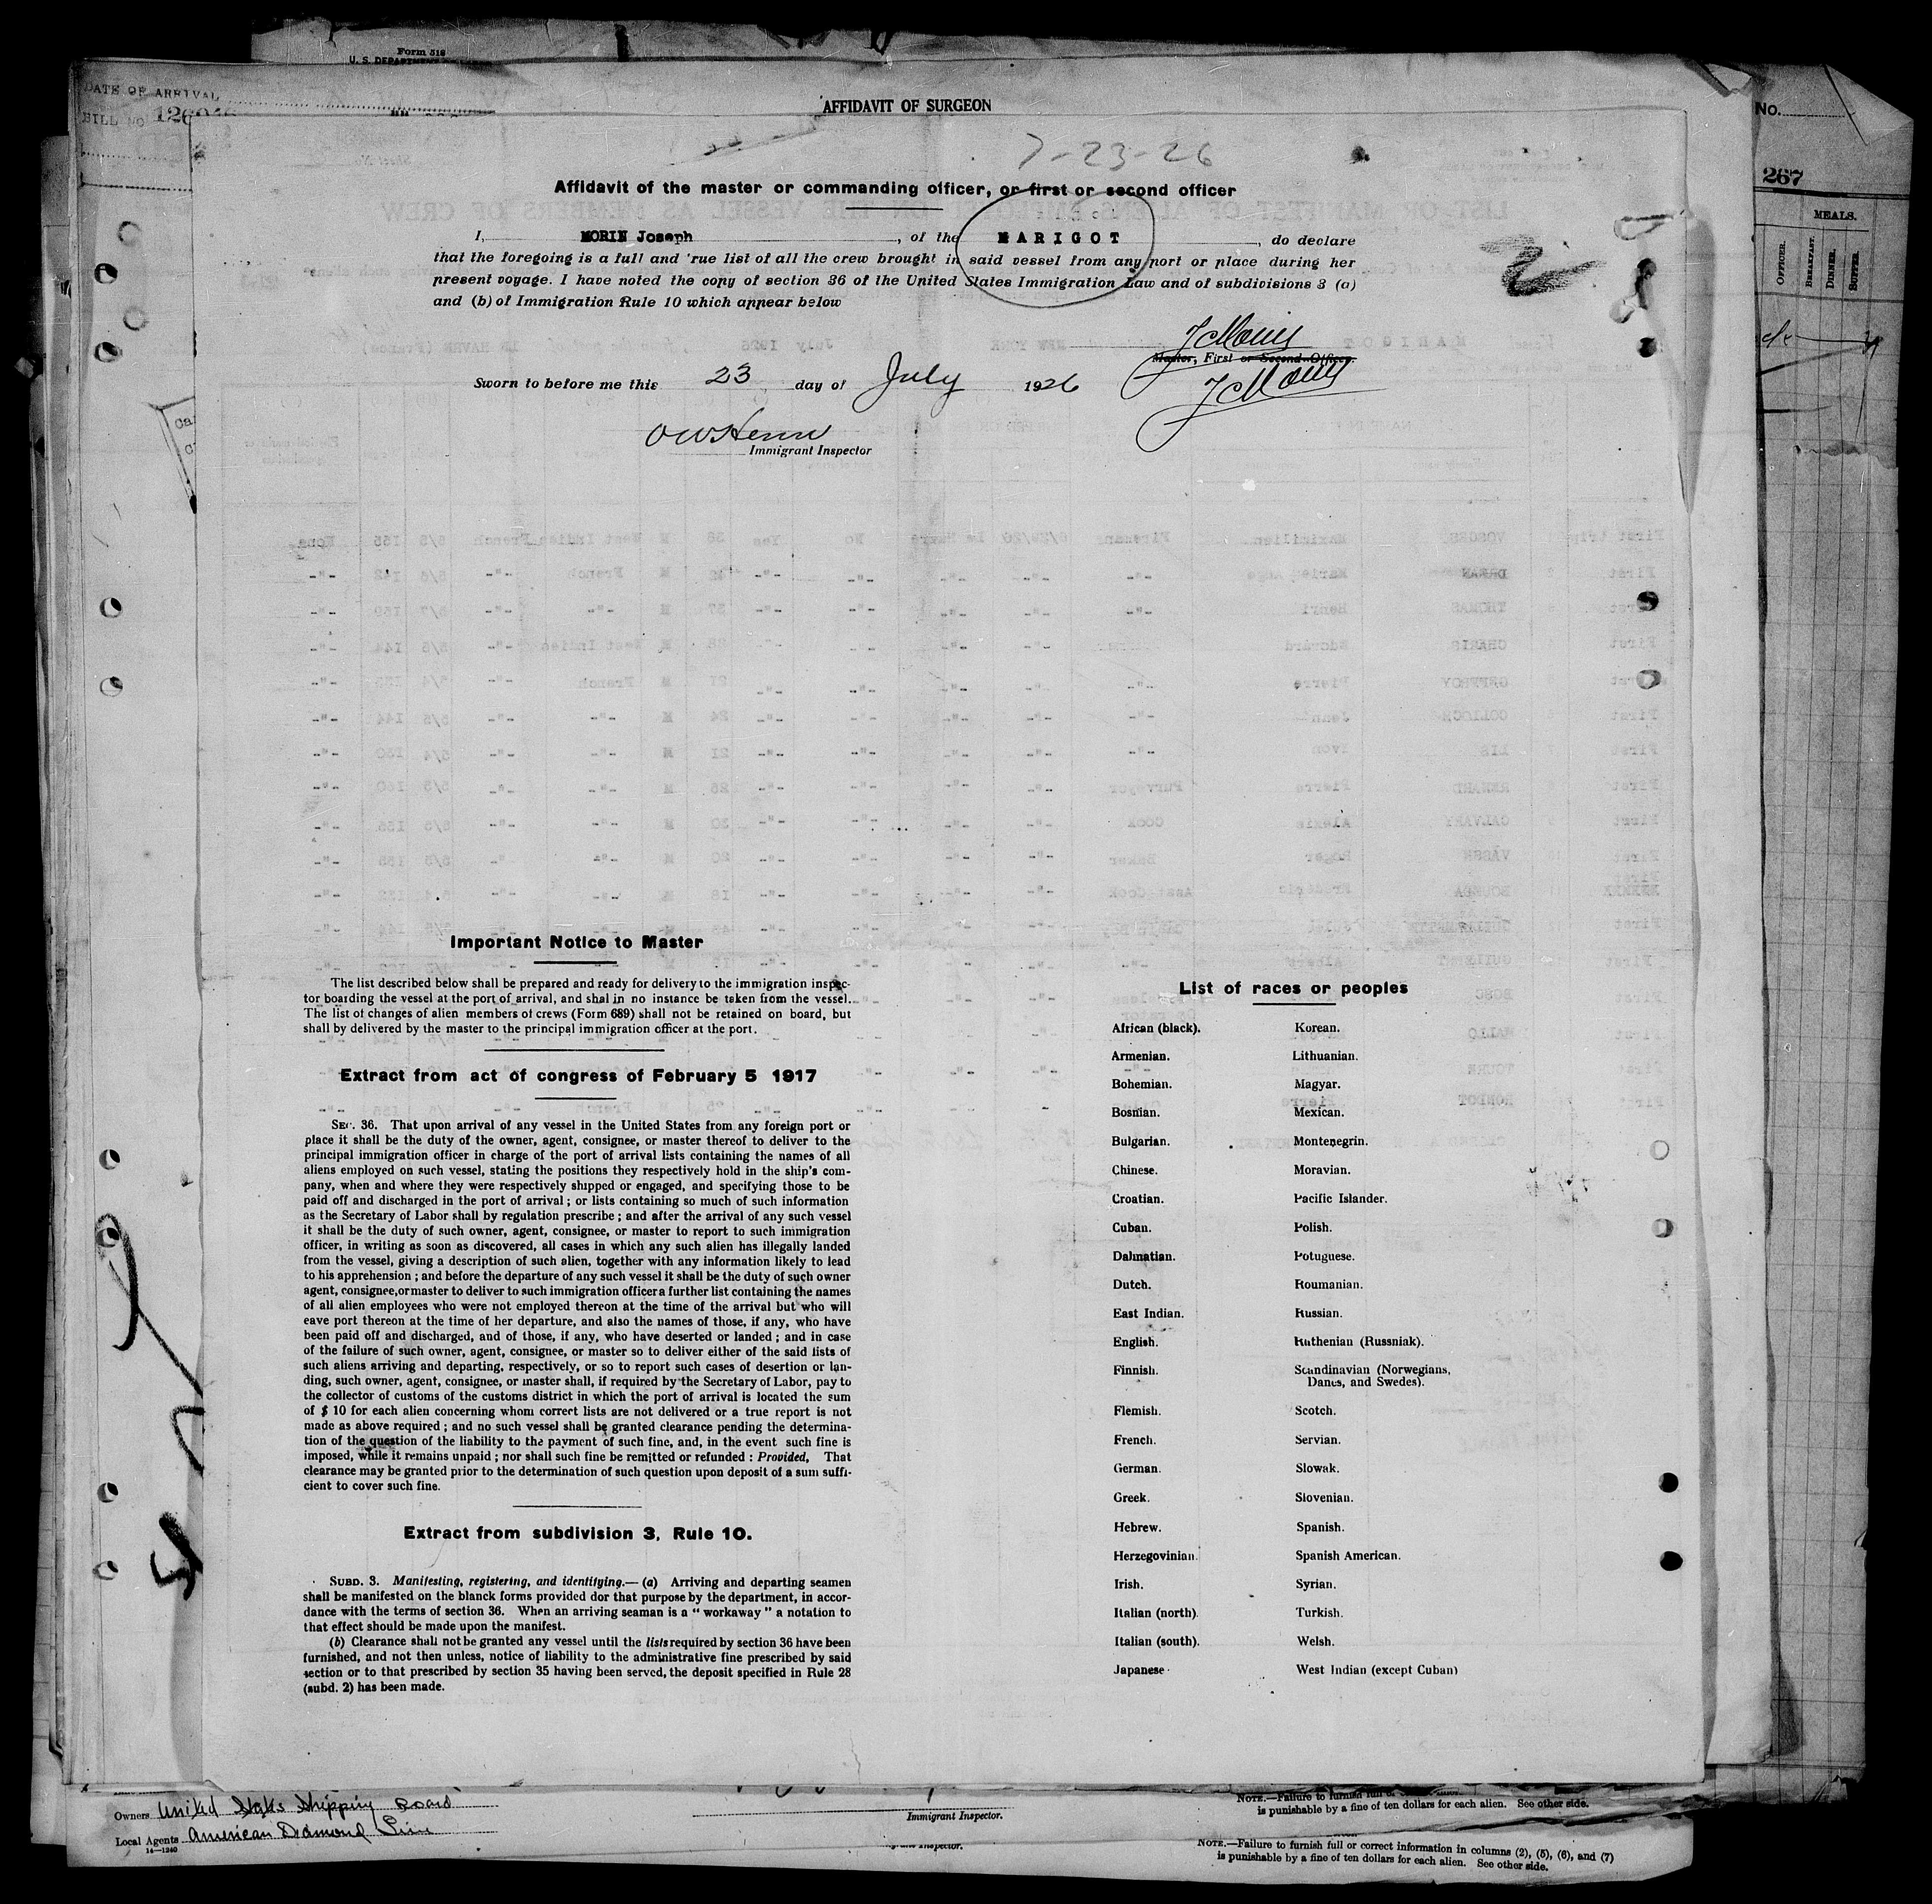 Form 518
U. S. DEPARTMENT
DATE OF ARRIVAL
BILL NO
AFFIDAVIT OF SURGEON
No.
267
MEALS.
OFFICER.
BREAKFAST.
DINNER.
SUPPER.
7-23-26
Affidavit of the master or commanding officer, or first or second officer
I, MORIN Joseph, of the MARIGOT, do declare
that the foregoing is a full and 'rue list of all the crew brought in said vessel from any port or place during her
present voyage. I have noted the copy of section 36 of the United States Immigration Law and of subdivisions 3 (a)
and (b) of Immigration Rule 10 which appear below
Master, First or Second Officer.
Sworn to before me this 23 day of July 1926
Immigrant Inspector
Important Notice to Master
The list described below shall be prepared and ready for delivery to the immigration inspec-
tor boarding the vessel at the port of arrival, and shal in no instance be taken from the vessel.
The list of changes of alien members of crews (Form 689) shall not be retained on board, but
shall by delivered by the master to the principal immigration officer at the port.
Extract from act of congress of February 5 1917
SEC. 36. That upon arrival of any vessel in the United States from any foreign port or
place it shall be the duty of the owner, agent, consignee, or master thereof to deliver to the
principal immigration officer in charge of the port of arrival lists containing the names of all
aliens employed on such vessel, stating the positions they respectively hold in the ship's com-
pany, when and where they were respectively shipped or engaged, and specifying those to be
paid off and discharged in the port of arrival ; or lists containing so much of such information
as the Secretary of Labor shall by regulation prescribe ; and after the arrival of any such vessel
it shall be the duty of such owner, agent, consignee, or master to report to such immigration
officer, in writing as soon as discovered, all cases in which any such alien has illegally landed
from the vessel, giving a description of such alien, together with any information likely to lead
to his apprehension ; and before the departure of any such vessel it shall be the duty of such owner
agent, consignee,ormaster to deliver to such immigration officer a further list containing the names
of all alien employees who were not employed thereon at the time of the arrival but who will
eave port thereon at the time of her departure, and also the names of those, if any, who have
been paid off and discharged, and of those, if any, who have deserted or landed ; and in case
of the failure of such owner, agent, consignee, or master so to deliver either of the said lists of
such aliens arriving and departing, respectively, or so to report such cases of desertion or lan-
ding, such owner, agent, consignee, or master shall, if required by the Secretary of Labor, pay to
the collector of customs of the customs district in which the port of arrival is located the sum
of $ 10 for each alien concerning whom correct lists are not delivered or a true report is not
made as above required ; and no such vessel shall be granted clearance pending the determina-
tion of the question of the liability to the payment of such fine, and, in the event such fine is
imposed, while it remains unpaid ; nor shall such fine be remitted or refunded : Provided, That
clearance may be granted prior to the determination of such question upon deposit of a sum suffi-
cient to cover such fine.
Extract from subdivision 3, Rule 10.
SUBD. 3. Manifesting, registering, and identitying.— (a) Arriving and departing seamen
shall be manifested on the blanck forms provided dor that purpose by the department, in accor-
dance with the terms of section 36. When an arriving seaman is a " workaway " a notation to
that effect should be made upon the manifest.
(b) Clearance shall not be granted any vessel until the lists required by section 36 have been
furnished, and not then unless, notice of liability to the administrative fine prescribed by said
section or to that prescribed by section 35 having been served, the deposit specified in Rule 28
(subd. 2) has been made.
List of races or peoples
African (black). Korean.
Armenian. Lithuanian.
Bohemian. Magyar.
Bosnian. Mexican.
Bulgarian. Montenegrin.
Chinese. Moravian.
Croatian. Pacific Islander.
Cuban. Polish.
Dalmatian. Potuguese.
Dutch. Roumanian.
East Indian. Russian.
English. Ruthenian (Russniak).
Finnish. Scandinavian (Norwegians,
Danes, and Swedes).
Flemish. Scotch.
French. Servian.
German. Slowak.
Greek. Slovenian.
Hebrew. Spanish.
Herzegovinian. Spanish American.
Irish. Syrian.
Italian (north). Turkish.
Italian (south). Welsh.
Japanese. West Indian (except Cuban)
Owners United States Shipping Board
Local Agents American Diamond Line
14—1240
Immigrant Inspector.
Inspector.
NOTE.—Failure to furnish full or
is punishable by a fine of ten dollars for each alien. See other side.
NOTE.—Failure to furnish full or correct information in columns (2), (5), (6), and (7)
is punishable by a fine of ten dollars for each alien. See other side.